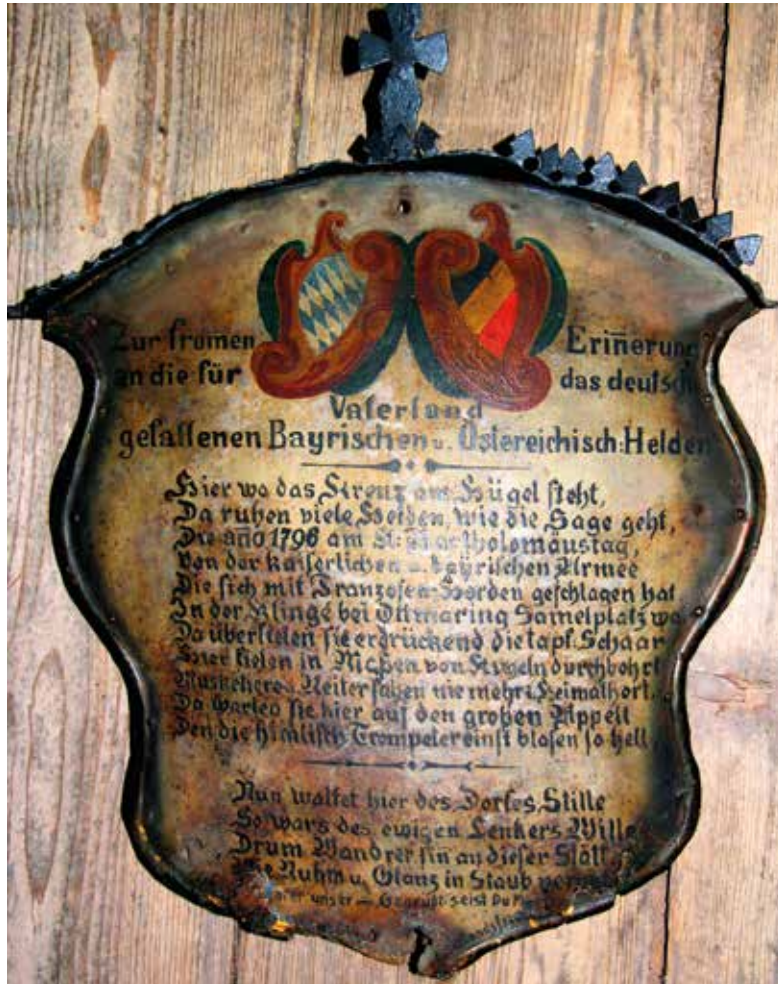 Zur fromen Eriñerung
an die für das deutsch
Vaterland
gefallenen Bayrischen u. Östereichisch: Helden
Hier wo das Kreuz am Hügel steht,
Da ruhen viele Helden, wie die Sage geht,
Die año 1796 am St. Bartholomäustag,
Von der kaiserlichen u. bayrischen Armee
Die sich mit Franzosen-Horden geschlagen hat
In der Klinge bei Ottmaring Samelplatz wa
Da überfielen sie erdrückend die tapf. Schaar
Hier fielen in Maßen von Kugeln durchbohrt
Muskeliere u. Reiter sahen nie mehr i. Heimathort.
Da warten sie hier auf den großen Appell
Den die himlisch Trompeter einst blasen so hell
Nun waltet hier des Dorfes Stille
So wars des ewigen Lenkers Wille
Drum Wandrer sin an dieser Stätt
Wie Ruhm u. Glanz in Staub
unser — Gegrüßt seist Du